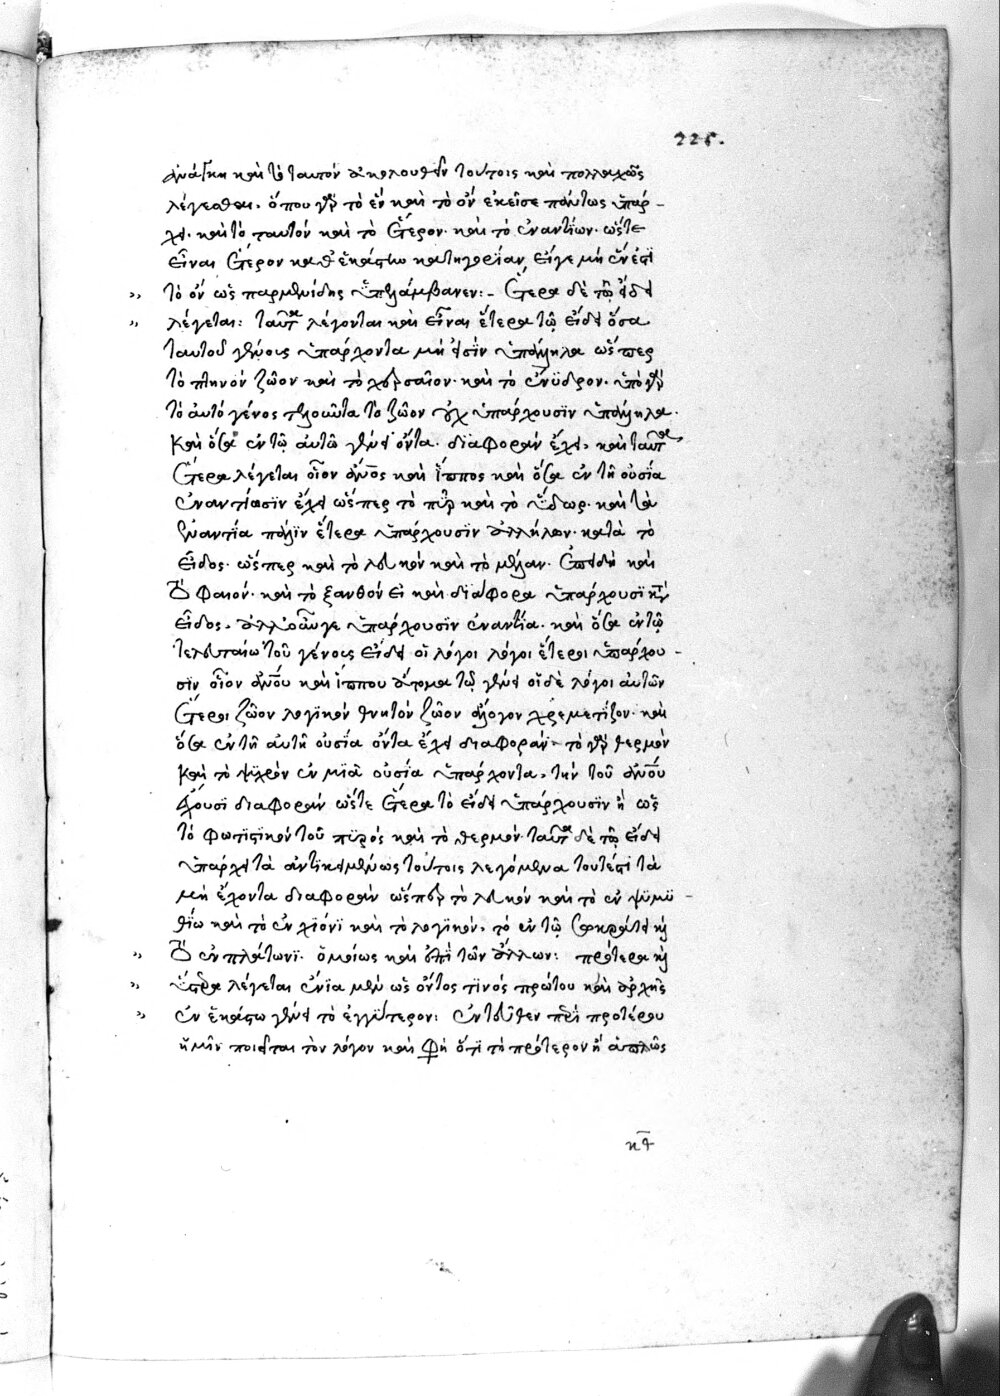 225.
ἀνάγκη καὶ τὸ ταυτὸν ἀκολουθεῖν τούτοις καὶ πολλαχῶς
λέγεσθαι· ὅπου γὰρ τὸ ἓν καὶ τὸ ὂν ἐκεῖσε πάντως ὑπάρ-
χει· καὶ τὸ ταυτόν καὶ τὸ ἕτερον· καὶ τὸ ἐναντίον· ὥστε
εἶναι ἕτερον καθ' ἑκάστην κατηγορίαν, εἴγε μὴ ἕν ἐστὶ
τὸ ὂν ὡς παρμενίδης ὑπελάμβανεν:- ἕτερα δὲ τῷ εἴδει
λέγεται: ταῦτα λέγονται καὶ εἶναι ἕτερα τῷ εἴδει ὅσα
ταυτοῦ γένους ὑπάρχοντα μή εἰσὶν ὑπάλληλα ὥσπερ
τὸ πτηνὸν ζῶον καὶ τὸ χερσαῖον· καὶ τὸ ἔνυδρον· ὑπὸ γὰρ
τὸ αὐτὸ γένος τελοῦντα τὸ ζῶον οὐχ ὑπάρχουσϊν ὑπάλληλα·
καὶ ὅσα ἐν τῷ αὐτῷ γένει ὄντα διαφορὰν ἔχει· καὶ ταῦτα
ἕτερα λέγεται οἷον ἄνος καὶ ἵππος καὶ ὅσα ἐν τῆ οὐσία
ἐναντίωσϊν ἔχει ὥσπερ τὸ πῦρ καὶ τὸ ὕδωρ· καὶ τὰ
ἐναντία πάλϊν ἕτερα ὑπάρχουσϊν ἀλλήλων κατὰ τὸ
εἶδος· ὥσπερ καὶ τὸ λευκὸν καὶ τὸ μέλαν. ἐπειδὴ καὶ
τὸ φαιόν· καὶ τὸ ξανθὸν εἰ καὶ διάφορα ὑπάρχουσϊ κατ'
εἶδος, ἀλλ' οὔγε ὑπάρχουσϊν ἐναντία· καὶ ὅσα ἐν τῷ
τελευταίω τοῦ γένους εἴδει οἱ λόγοι λόγοι ἕτεροι ὑπάρχου-
σϊν οἷον ἄνου καὶ ἵππου ἄτομα τῷ γένει οἱ δὲ λόγοι αὐτῶν
ἕτεροι ζῶον λογϊκὸν θνητὸν ζῶον ἄλογον χρεμετίζον· καὶ
ὅσα ἐν τῆ αὐτῆ οὐσία ὄντα ἔχει διαφοράν· τὸ γὰρ θερμὸν
καὶ τὸ ψϋχρὸν ἐν μϊᾶ οὐσία ὑπάρχοντα, τὴν τοῦ ἄνου
ἔχουσϊ διαφορὰν ὥστε ἕτερα τὸ εἴδει ὑπάρχουσϊν ἢ ὡς
τὸ φωτϊστϊκὸν τοῦ πϋρός καὶ τὸ θερμόν· ταῦτα δὲ τῷ εἴδει
ὑπάρχει τὰ ἀντϊκειμένως τούτοις λεγόμενα τουτέστι τὰ
μὴ ἔχοντα διαφορὰν ὥσπερ τὸ λευκὸν καὶ τὸ ἐν ψϊμϋ-
θίω καὶ τὸ ἐν χϊόνϊ καὶ τὸ λογϊκόν, τὸ ἐν τῷ σωκράτει καὶ
τὸ ἐν πλάτωνϊ· ὁμοίως καὶ ἐπὶ τῶν ἄλλων: πρότερα καὶ
ὕστερα λέγεται ἔνϊα μὲν ὡς ὄντος τϊνός πρώτου καὶ ἀρχῆς
ἐν ἑκάστω γένει τὸ ἐγγύτερον: ἐντεῦθεν περὶ προτέρου
ἡμῖν ποιεῖται τὸν λόγον καὶ φησὶ ὅτϊ τὸ πρότερον ἢ ἁπλῶς
κδ